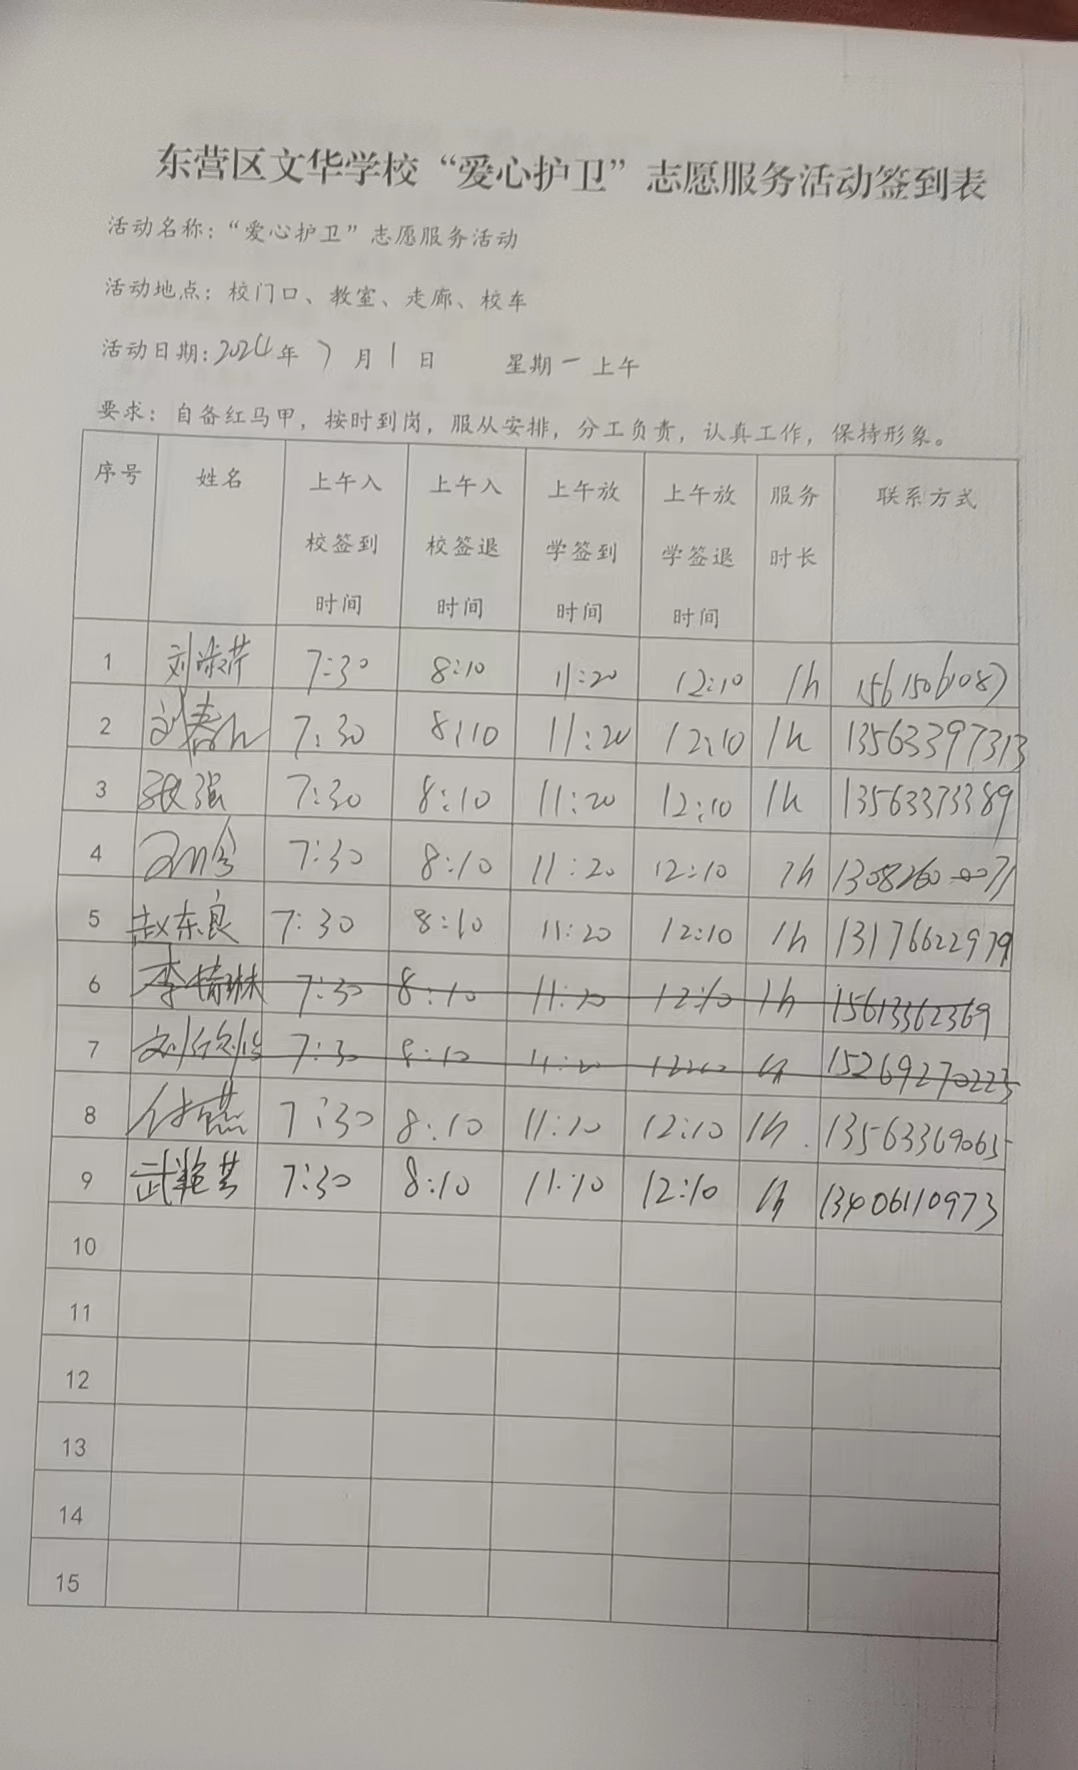 东营区文华学校“爱心护卫”志愿服务活动签到表
活动名称：“爱心护卫”志愿服务活动
活动地点：校门口、教室、走廊、校车
活动日期：2024年7月1日 星期一上午
要求：自备红马甲，按时到岗，服从安排，分工负责，认真工作，保持形象。
序号 姓名 上午入校签到时间 上午入校签退时间 上午放学签到时间 上午放学签退时间 服务时长 联系方式
1 7:30 8:10 11:20 12:10 1h 15615061087
2 7:30 8:10 11:20 12:10 1h 13563397313
3 张强 7:30 8:10 11:20 12:10 1h 13563373389
4 7:30 8:10 11:20 12:10 1h
5 赵东良 7:30 8:10 11:20 12:10 1h 13176622979
6 李倩琳 7:30 8:10 11:20 12:10 1h 15613362369
7 7:30 8:10 11:20 1h 15269270223
8 7:30 8:10 11:20 12:10 1h 13563369065
9 武艳芸 7:30 8:10 11:10 12:10 1h 13406110973
10
11
12
13
14
15